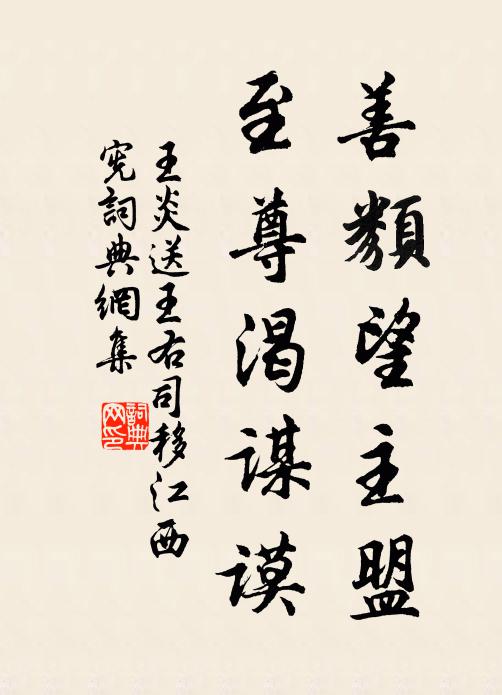 善類望主盟
至尊渴謀謨
王炎送王右司移江西
宪詞典網集
詞典网印